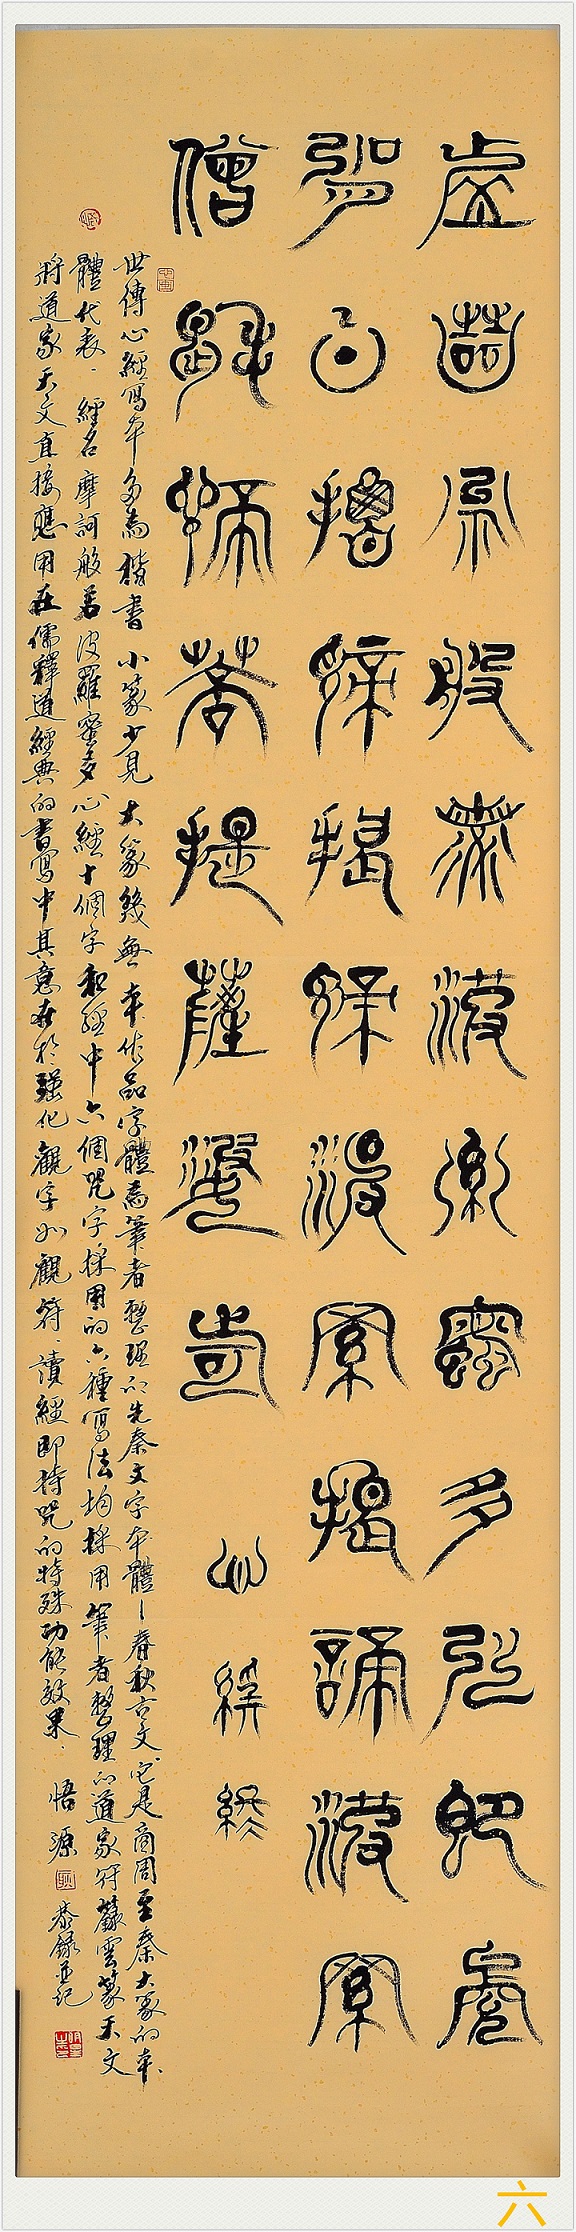 虛故說般若波羅蜜多咒即說
咒曰揭諦揭諦波羅揭諦波羅
僧揭諦菩提薩婆訶 心經終
世傳心經寫本多為楷書小篆少見大篆幾無本作品字體為筆者整理的先秦文字本體—春秋古文它是商周至秦大篆的本
體代表．經名摩訶般若波羅蜜多心經十個字和經中六個咒字採用的六種寫法均採用筆者整理的道家符籙雲篆天文
將道家天文直接應用在儒釋道經典的書寫中其意在於強化觀字如觀符．讀經即持咒的特殊功能效果．悟源 恭錄並記
六